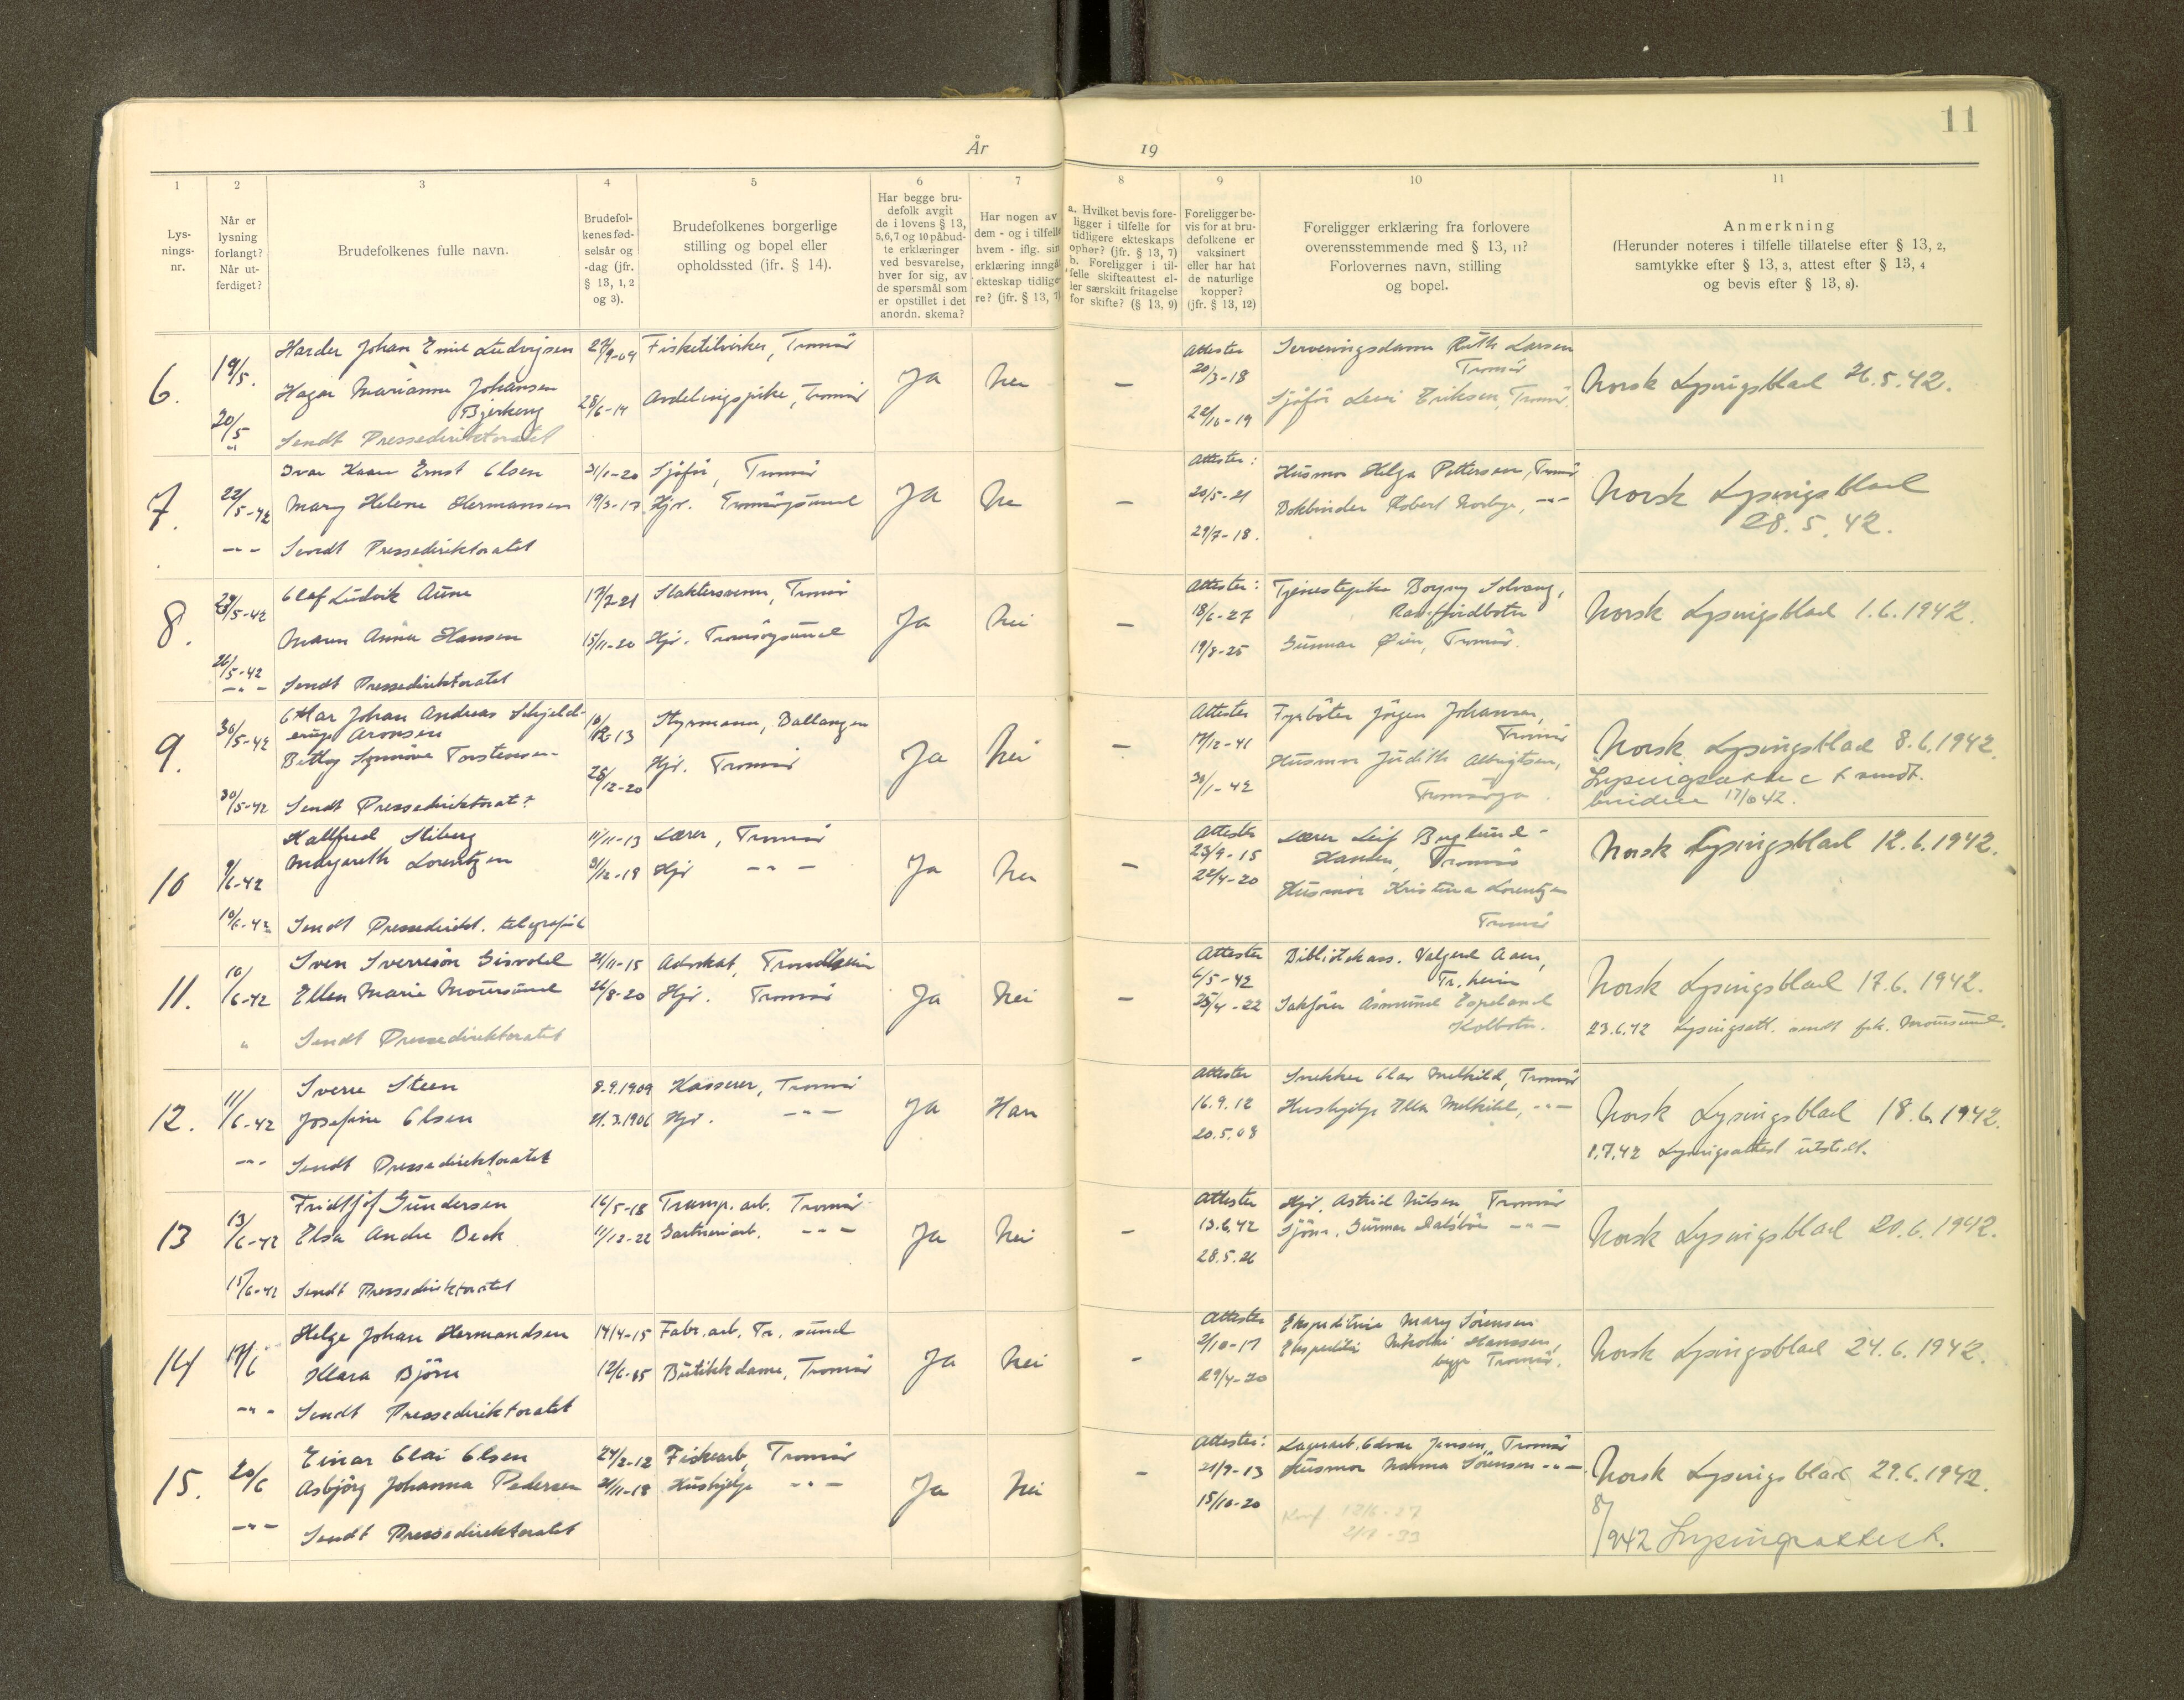 11
År 19
1 2 3 4 5 6 7 8 9 10 11
Lys-
nings-
nr.
Når er
lysning
forlangt?
Når ut-
ferdiget?
Brudefolkenes fulle navn.
Brudefol-
kenes fød-
selsår og
-dag (jfr.
§ 13, 1, 2
og 3).
Brudefolkenes borgerlige
stilling og bopel eller
opholdssted (jfr. § 14).
Har begge bru-
defolk avgit
de i lovens § 13,
5,6,7 og 10 påbud-
te erklæringer
ved besvarelse,
hver for sig, av
de spørsmål som
er opstillet i det
anordn. skema?
Har nogen av
dem - og i tilfelle
hvem - iflg. sin
erklæring inngåt
ekteskap tidlige-
re? (jfr. § 13, 7)
a. Hvilket bevis fore-
ligger i tilfelle for
tidligere ekteskaps
ophør? (jfr. § 13, 7)
b. Foreligger i til-
felle skifteattest el-
ler særskilt fritagelse
for skifte? (§ 13, 9)
Foreligger be-
vis for at bru-
defolkene er
vaksinert
eller har hat
de naturlige
kopper?
(jfr. § 13, 12)
Foreligger erklæring fra forlovere
overensstemmende med § 13, 11?
Forlovernes navn, stilling
og bopel.
Anmerkning
(Herunder noteres i tilfelle tillatelse efter § 13, 2,
samtykke efter § 13, 3, attest efter § 13, 4
og bevis efter § 13, 8).
6. 19/5. Harder Johan Emil Ludvigsen 27/9-09 Fisketilvirker, Tromsö Ja Nei – Attester Serveringsdame Ruth Larsen
20/3-18 Tromsö
Hagar Marianne Johansen 28/6-14 Avdelingspike, Tromsö Sjåför Levi Eriksen, Tromsö. Norsk Lysingsblad 26.5.42.
Bjerkeng 22/10-19
20/5 Sendt Pressedirektoratet
7. 22/5-42 Ivar Kaare Ernst Olsen 31/1-20 Sjåför, Tromsö Ja Nei – Attester: Husmor Helga Pettersen, Tromsö
Mary Helene Hermansen 19/3-17 Hjv. Tromsöysund 20/5-21 Bokbinder Robert Norbye, -"- Norsk Lysingsblad
28.5.42.
-"- Sendt Pressedirektoratet 29/7-18.
8. /5-42 Olaf Ludvik Aune 17/7-21 Slaktersvenn, Tromsö Ja Nei – Attester: Tjenestepike Borgny Solvang,
18/6-27
Maren Anna Hansen 15/11-20 Hjv. Tromsöysund 19/8-25 Gunnar Øien, Tromsö. Norsk Lysingsblad 1.6.1942.
26/5-42
-"- Sendt Pressedirektoratet
9. 30/5-42 Otto Johan Andreas Schjeld-
erup Aronsen 10/12-13 Styrmann, Ballangen Ja Nei – Attester Fyrböter Jörgen Johansen,
17/12-41 Tromsö
Torstensen 28/12-20 Hjv. Tromsö Husmor Judith Albrigtsen, Norsk Lysingsblad 8.6.1942.
30/1-42 Tromsöya. Lysingsattest sendt
30/5-42 Sendt Pressedirektorat. 17/6 42.
10 9/6-42 Hallfred Stiberg 11/11-13 Lærer, Tromsö Ja Nei – Attester Lærer Leif Berglund-
Margareth Lorentzen 3/12-19 Hjv -"- 23/9-15 Hansen, Tromsö Norsk Lysingsblad 12.6.1942.
22/4-20 Husmor Kristina Lorentzen
10/6-42 Sendt Pressedirekt. telegrafisk Tromsö
11. 10/6-42 Sven Sverresön Gisvold 21/11-15 Advokat, Trondheim Ja Nei – Attester Bibliotekass. Valgerd Aaen,
6/5-42 Tr.heim
Ellen Marie Moursund 26/8-20 Hjv. Tromsö 25/4-22 Sakförer Åsmund Espeland Norsk Lysingsblad 17.6.1942.
Kolbotn.
" Sendt Pressedirektoratet 23.6.42 Lysingsatt. sendt frk. Moursund.
12. 11/6-42 Sverre Steen 8.9.1909 Kasserer, Tromsö Ja Han Attester Snekker Olav Melkild, Tromsö
Josefine Olsen 21.3.1906 Hjv. -"- 16.9.12 Hushjelp Ella Melkild, -"- Norsk Lysingsblad 18.6.1942.
20.5.08 1.7.42 Lysingsattest utstedt.
-"- Sendt Pressedirektoratet
13 13/6-42 Fridtjof Gundersen 16/5-18 Transp.arb. Tromsö Ja Nei – Attester Hjv. Astrid Nilsen, Tromsö
Elsa Andre Beck 11/12-22 Gartneriarb. -"- 13.6.42 Sjöm. Gunnar Dalsbö -"- Norsk Lysingsblad 20.6.1942.
28.5.26
15/6-42 Sendt Pressedirektoratet
14 17/6 Helge Johan Hermandsen 14/4-15 Fabr.arb. Tr. sund Ja Nei - Attester Ekspeditrise Mary Sörensen
2/10-17 Ekspeditör Nikolai Hanssen,
Klara Björn 12/6-15 Butikkdame, Tromsö begge Tromsö. Norsk Lysingsblad 24.6.1942.
29/4-20
-"- Sendt Pressedirektoratet
15. 20/6 Einar Olai Olsen 24/2-12 Fiskearb, Tromsö Ja Nei - Attester: Lagerarb. Edvar Jensen, Tromsö
Asbjörg Johanna Pedersen 21/11-18 Hushjelp -"- 21/9-13 Husmor Nanna Sörensen -"- Norsk Lysingsblad 29.6.1942.
15/10-20 Konf 12/6-27
-"- Sendt Pressedirektoratet 8/7 942 Lysingsattest.